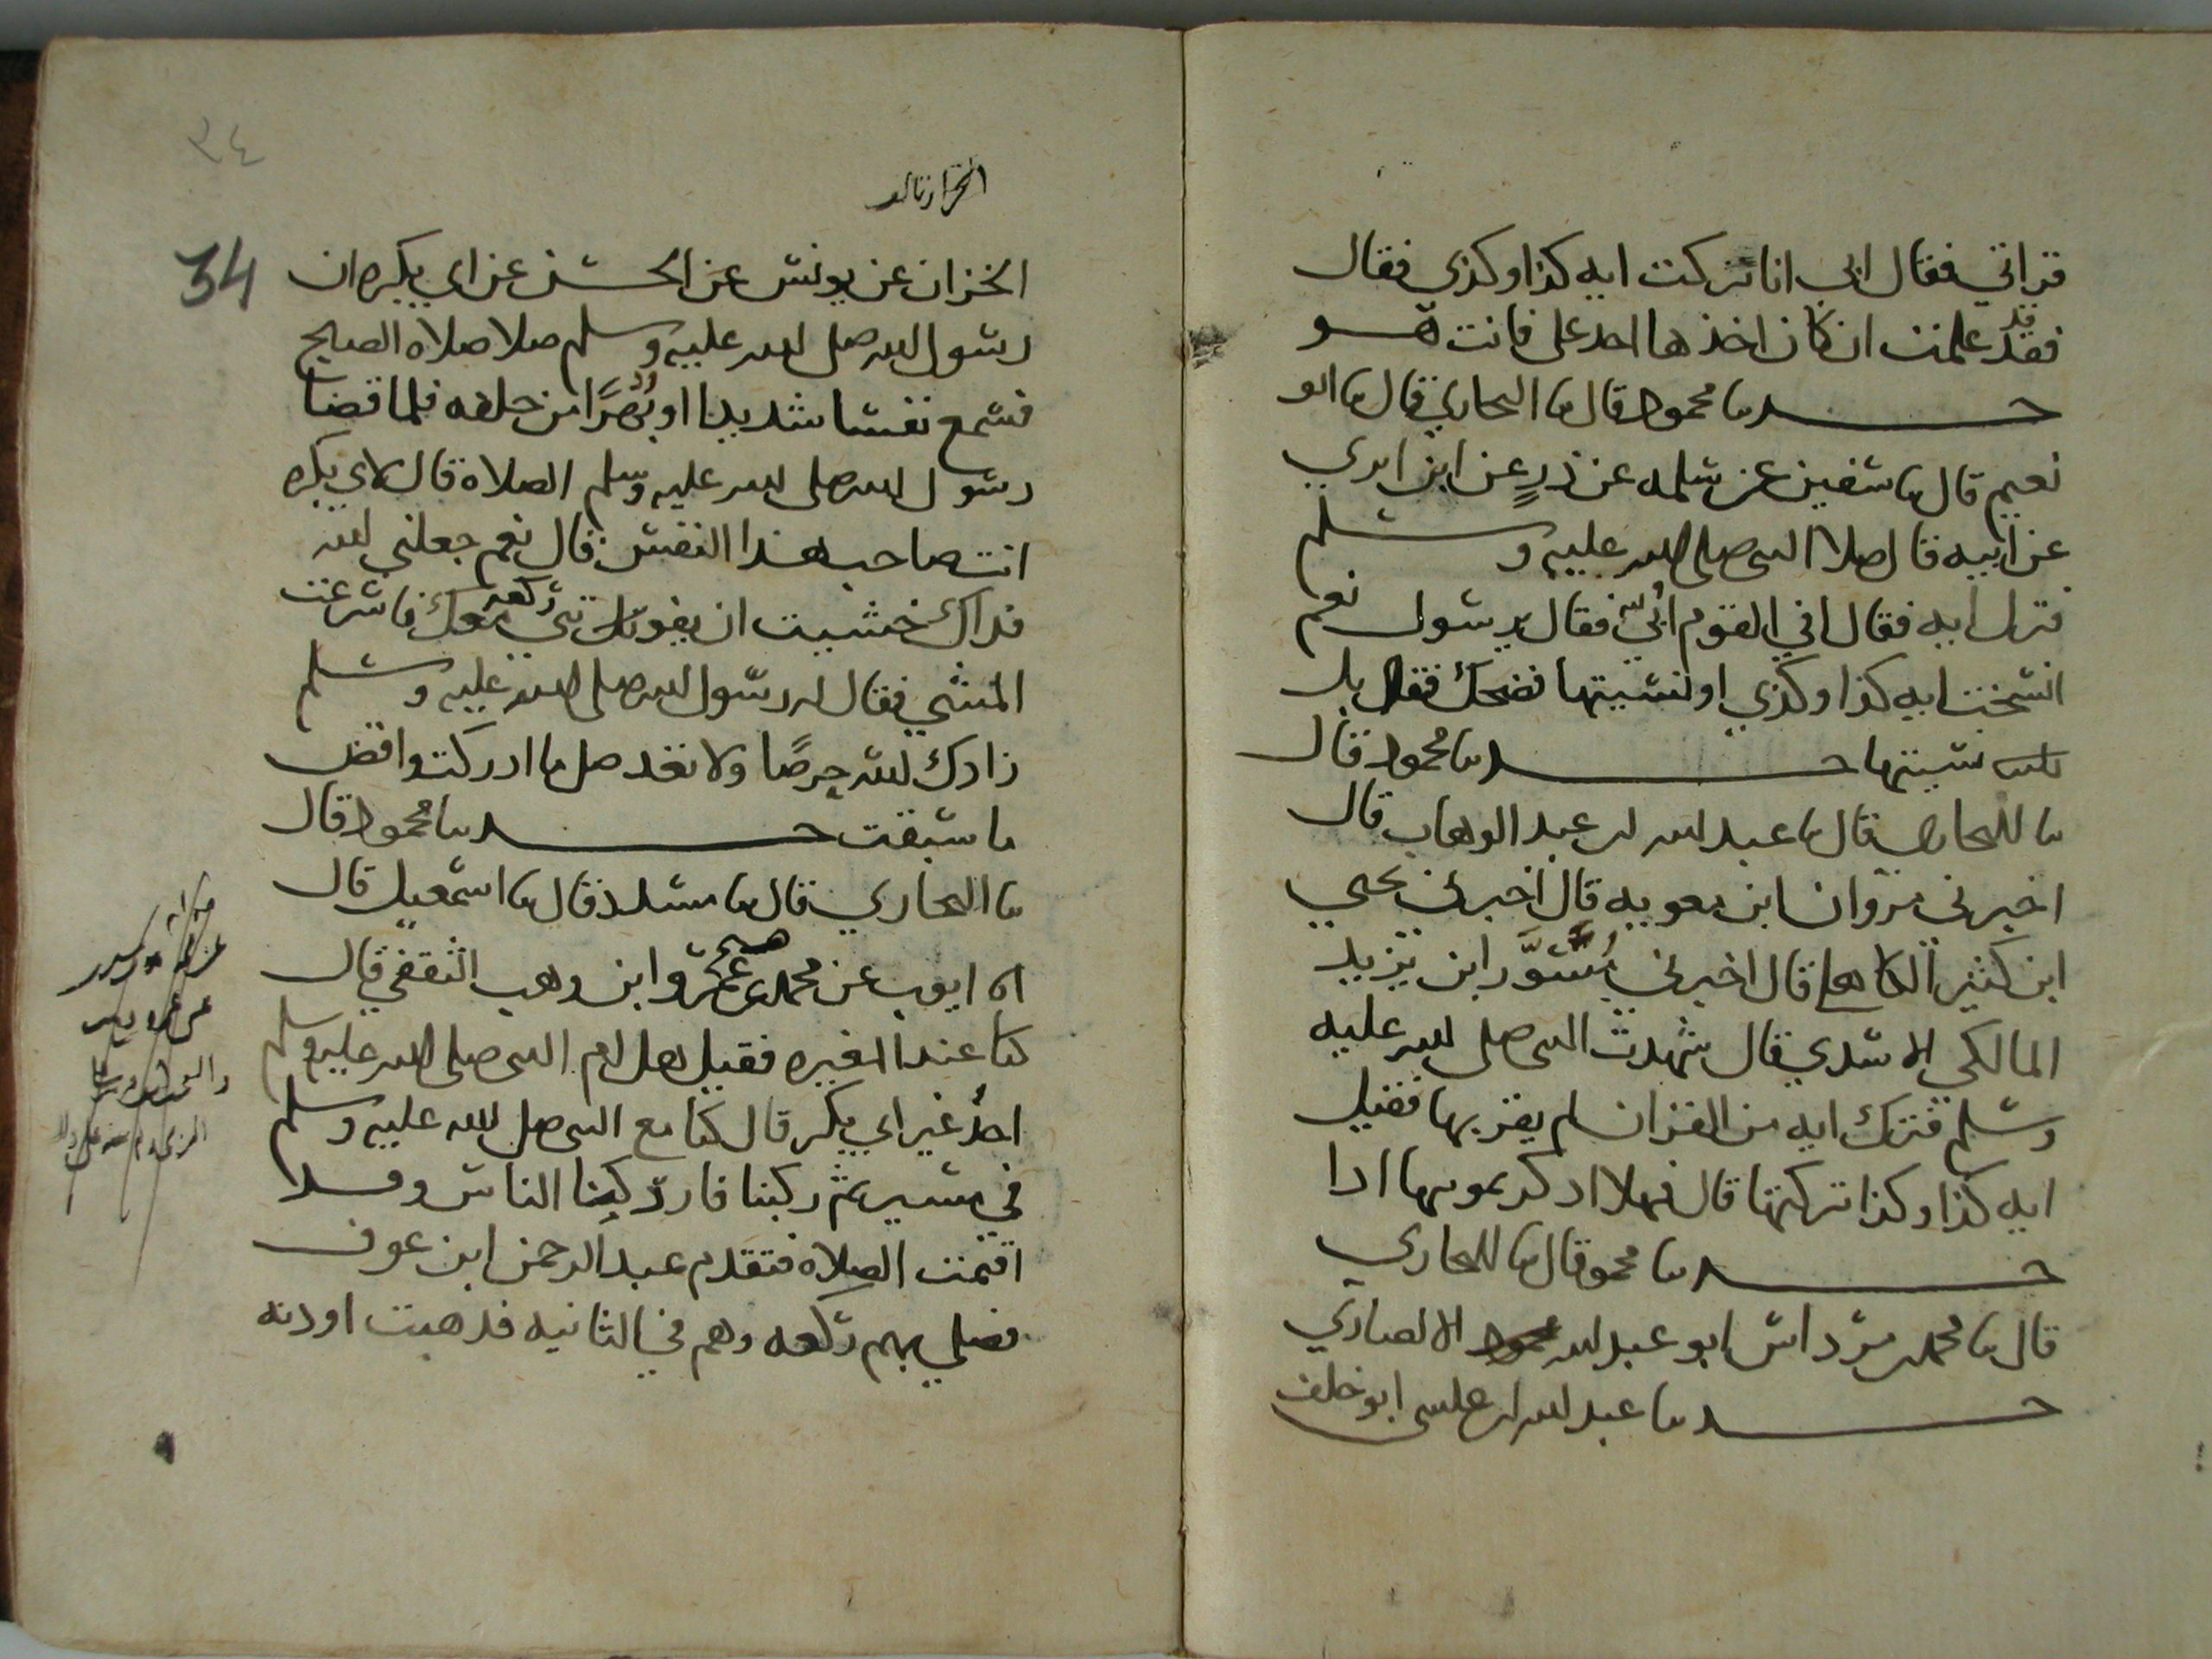 قراتي فقال ابي انا تركت ايه كذا وكذي فقال
قد
فقد علمت ان كان اخذها احد علي فانت هــو
حـــدنا محمود قال نا البخاري قال نا ابو
نعيم قال نا سفين عن سلمه عن ذرٍ عن ابن ابزي
عن ابيه قال صلا النبي صلى الله عليه وسلم
فترك ايه فقال افي القوم اُبيّ فقال يرسول نعم
انسخت ايه كذا وكذي او نسيتها فضحك فقال بل
نسيتها حـــدنا محمود قال
نا البخاري قال نا عبد الله بن عبد الوهاب قال
اخبرني مروان ابن معويه قال اخبرني يحيي
ابن كثير الكاهلي قال اخبرني مُسَوَّر ابن يزيد
المالكي الاسدي قال شهدت النبي صلى الله عليه
وسلم فترك ايه من القران لم يقربها فقيل
ايه كذا وكذا تركتها قال فهلا اذكرتمونيها اذا
حـــدنا محمود قال نا البخاري
قال نا محمد بن مرداس ابو عبد الله الانصاري
حـــدنا عبد الله بن عيسى ابو خلف
٣٤
34
الخزاز قال
الخزان عن يونس عن الحسن عن ابي بكره ان
رسول الله صلى الله عليه وسلم صلا صلاه الصبح
فسمع نفسا شديدا او بُهرًا من خلفه فلما قضا
رسول الله صلى الله عليه وسلم الصلاة قال لابي بكره
انت صاحب هذا النفس قال نعم جعلني الله
فداك خشيت ان يفوتني ركعه معك فاسرعت
المشي فقال له رسول الله صلى الله عليه وسلم
زادك الله حرصًا ولا تعد صل ما ادركت واقض
ما سبقت حـــدنا محمود قال
نا البخاري قال نا مسدد قال نا اسمعيل قال
انا ايوب عن محمد عن عمرو ابن وهب الثقفي قال
كنا عند المغيره فقيل هل ام النبي صلى الله عليه وسلم
احدٌ غير ابي بكر قال كنا مع النبي صلى الله عليه وسلم
في مسير ثم ركبنا فادركنا الناس وقد
اقيمت الصلاه فتقدم عبد الرحمن ابن عوف
فصلي بهم ركعه وهم في الثانيه فذهبت اوذنه